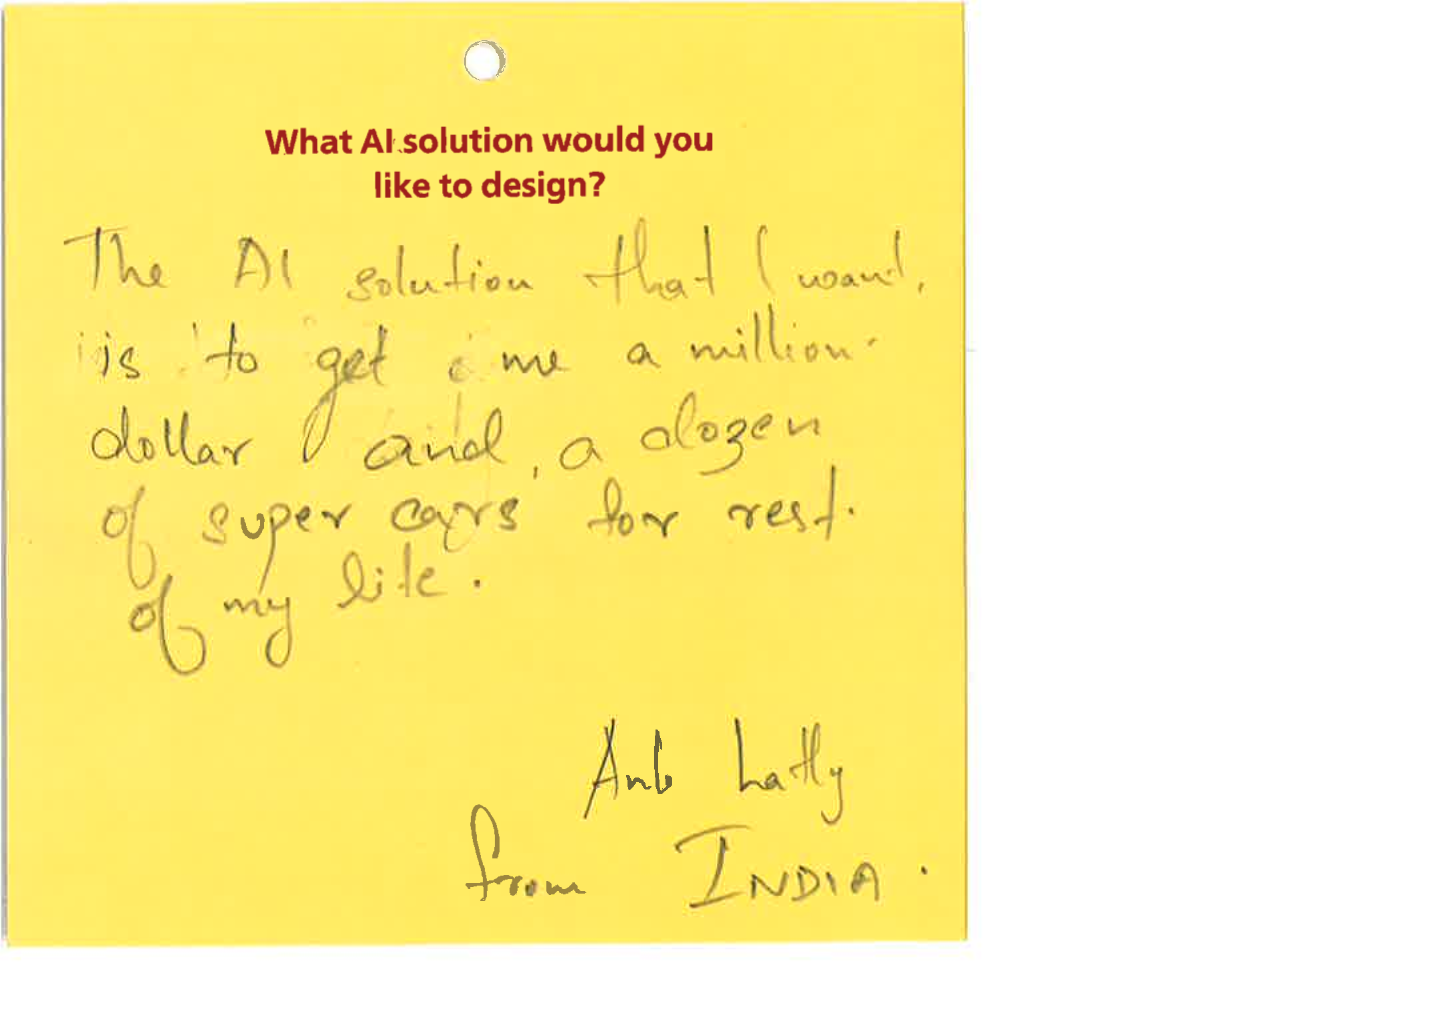 What AI solution would you
like to design?
The AI solution that I want
is to get me a million
dollar and a dozen
of super cars for rest
of my life.
from INDIA.